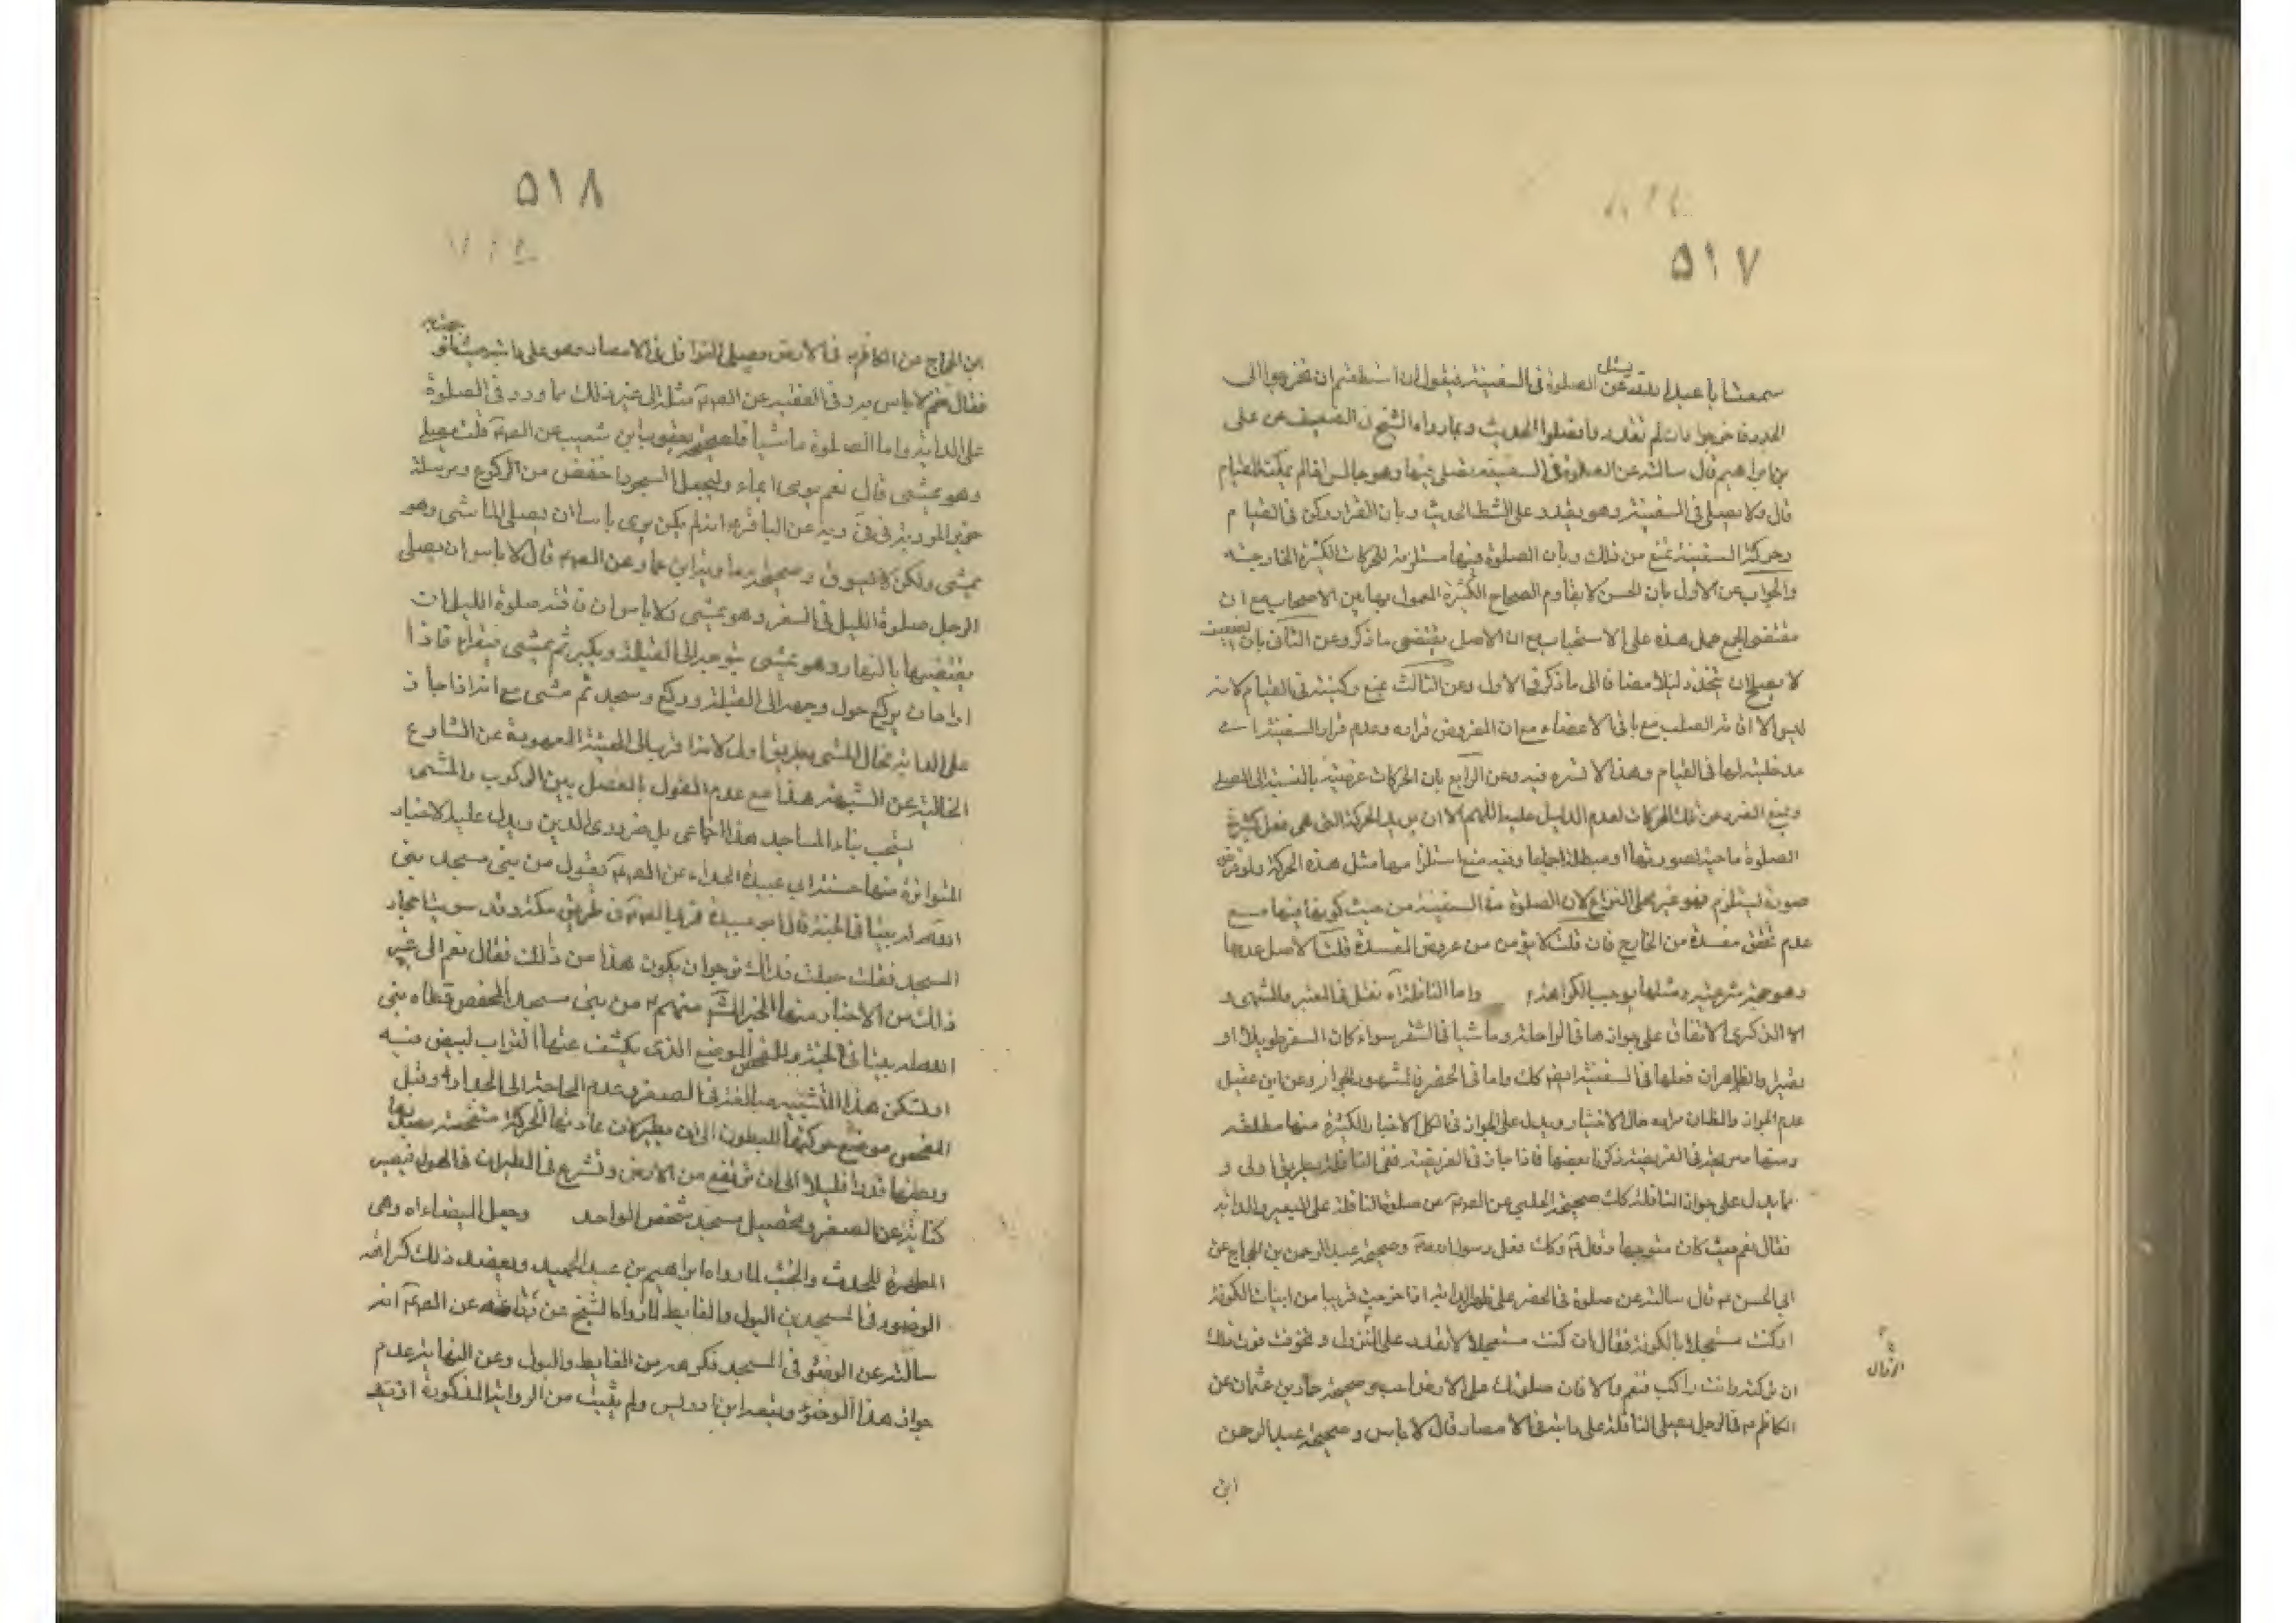 ٥١٧
سمعت ابا عبد الله يسئل عن الصلوة فى السفينة فيقول ان استطعتم ان تخرجوا الى
الجدد فاخرجوا فان لم تقدروا فصلوا الحديث وبما رواه الشيخ فى الضعيف عن على
بن ابراهيم قال سالته عن الصلوة فى السفينة يصلى فيها وهو جالس اذا لم يمكنه القيام
قال ولا يصلى فى السفينة وهو يقدر على الشط الحديث وبان القرار ركن فى القيام
وحركة السفينة تمنع من ذلك وبان الصلوة فيها مستلزمة للحركات الكثيرة الخارجة
والجواب عن الاول بان الحسن لا يقاوم الصحاح الكثيرة المعمول بها بين الاصحاب مع ان
مقتضى الجمع حمل هذه على الاستحباب مع ان الاصل يقتضى ما ذكر وعن الثانى بان الضعيف
لا يصلح ان يتخذ دليلا مضافا الى ما ذكر فى الاول وعن الثالث بمنع ركنيته فى القيام لانه
ليس الا اقامة الصلب مع باقى الاعضاء مع ان المفروض قراره وعدم قرار السفينة
مدخلية لها فى القيام وهذا لا شبهة فيه وعن الرابع بان الحركات عرضية بالنسبة الى المصلى
ونمنع الضرر عن تلك الحركات لعدم الدليل عليه اللهم الا ان يريد الحركة التى هى فعل كثير فى
الصلوة ماحية لصورتها او مبطلة اجماعا وفيه منع استلزامها مثل هذه الحركة ولو فرض
صورة يستلزم فهو غير محل النزاع لان الصلوة فى السفينة من حيث كونها فيها مع
عدم تحقق مفسدة من الخارج فان قلت لا يؤمن من عروض المفسدة قلنا الاصل عدمها
وهو حجة شرعية ومثلها يوجب الكراهة واما النافلة اه نقل فى المعتبر والمنتهى و
الذكرى الاتفاق على جوازها فى الراحلة وماشيا فى السفر سواء كان السفر طويلا او
قصيرا والظاهر ان فعلها فى السفينة ايضا كك واما فى الحضر فالمشهور الجواز وعن ابن عقيل
عدم الجواز والظان مراده حال الاختيار ويدل على الجواز فى الكل الاخبار الكثيرة منها مطلقة
ومنها صريحة فى الفريضة ذكرنا بعضها فاذا جاز فى الفريضة ففى النافلة بطريق اولى و
مما يدل على جواز النافلة كك صحيحة الحلبى عن الصادق عن صلوة النافلة على البعير والدابة
فقال نعم حيث كان متوجها وكك فعل رسول الله وصحيحة عبد الرحمن بن الحجاج عن
ابى الحسن ع قال سالته عن صلوة فى الحضر على ظهر الدابة اذا خرجت قريبا من ابيات الكوفة
او كنت مستعجلا بالكوفة فقال ان كنت مستعجلا لا تقدر على النزول و تخوفت فوت ذلك
ان تركته وانت راكب فنعم والا فان صلوتك على الارض احب وصحيحة حماد بن عثمان عن
الكاظم ع فى الرجل يصلى النافلة على دابته فى الامصار قال لا باس و صحيحة عبد الرحمن
ابن
النزال
٥١٨
ابن الحجاج عن الكاظم ع فى الرجل يصلى النوافل فى الامصار وهو على دابته حيث توجهت به
فقال نعم لا باس وروى فى الفقيه عن الصادق مثله الى غير ذلك مما ورد فى الصلوة
على الدابة واما الصلوة ماشيا فلصحيحة يعقوب بن شعيب عن الصادق قلت يصلى
وهو يمشى قال نعم يومى ايماء وليجعل السجود اخفض من الركوع ومرسلة
حريز المروية فى فى وفيه عن الباقر ع انه لم يكن يرى باسا ان يصلى الماشى وهو
يمشى ولكن لا يسوق وصحيحة معاوية ابن عمار عن الصادق قال لا باس ان يصلى
الرجل صلوة الليل فى السفر وهو يمشى ولا باس ان فاتته صلوة الليل ان
يقضيها بالنهار وهو يمشى يتوجه الى القبلة ويكبر ثم يمشى فيقراء فاذا
اراد ان يركع حول وجهه الى القبلة وركع وسجد ثم مشى مع انه اذا جاز
على الدابة فحال المشى بطريق اولى لانه اقرب الى الهيئة المعهودة عن الشارع
الخالية عن الشبهة هذا مع عدم القول بالفصل بين الركوب والمشى
يستحب بناء المساجد هذا اجماعى بل ضرورى الدين ويدل عليه الاخبار
المتواترة منها حسنة ابى عبيدة الحذاء عن الصادق يقول من بنى مسجدا بنى
الله له بيتا فى الجنة قال ابو عبيدة فمر بى الصادق فى طريق مكة وقد سويت احجار
المسجد فقلت جعلت فداك نرجو ان يكون هذا من ذلك فقال نعم الى غير
ذلك من الاخبار منها الخبر المشهور عنهم ع من بنى مسجدا كمفحص قطاه بنى
الله له بيتا فى الجنة والمفحص الموضع الذى يكشف عنها التراب لتبيض فيه
او تسكن هذا التشبيه مبالغة فى الصغر وعدم الحاجة الى الجدار وقيل
ان تطير فان عادتها الحركة
ان ترتفع من الارض وتشرع فى الطيران فى الهواء فيصير
كناية عن الصغر وتحصيل مسجد شخص الواحد وجعل الميضاة اه وهى
المطهرة للحدث والخبث لما رواه ابراهيم بن عبد الحميد ويعضد ذلك كراهة
الوضوء فى المسجد من البول والغايط لما رواه الشيخ عن رفاعة عن الصادق انه
سالته عن الوضوء فى المسجد فكرهه من الغايط والبول وعن النهاية عدم
جواز هذا الوضوء وتبعه ابن ادريس ولم يثبت من الرواية المذكورة ازيد